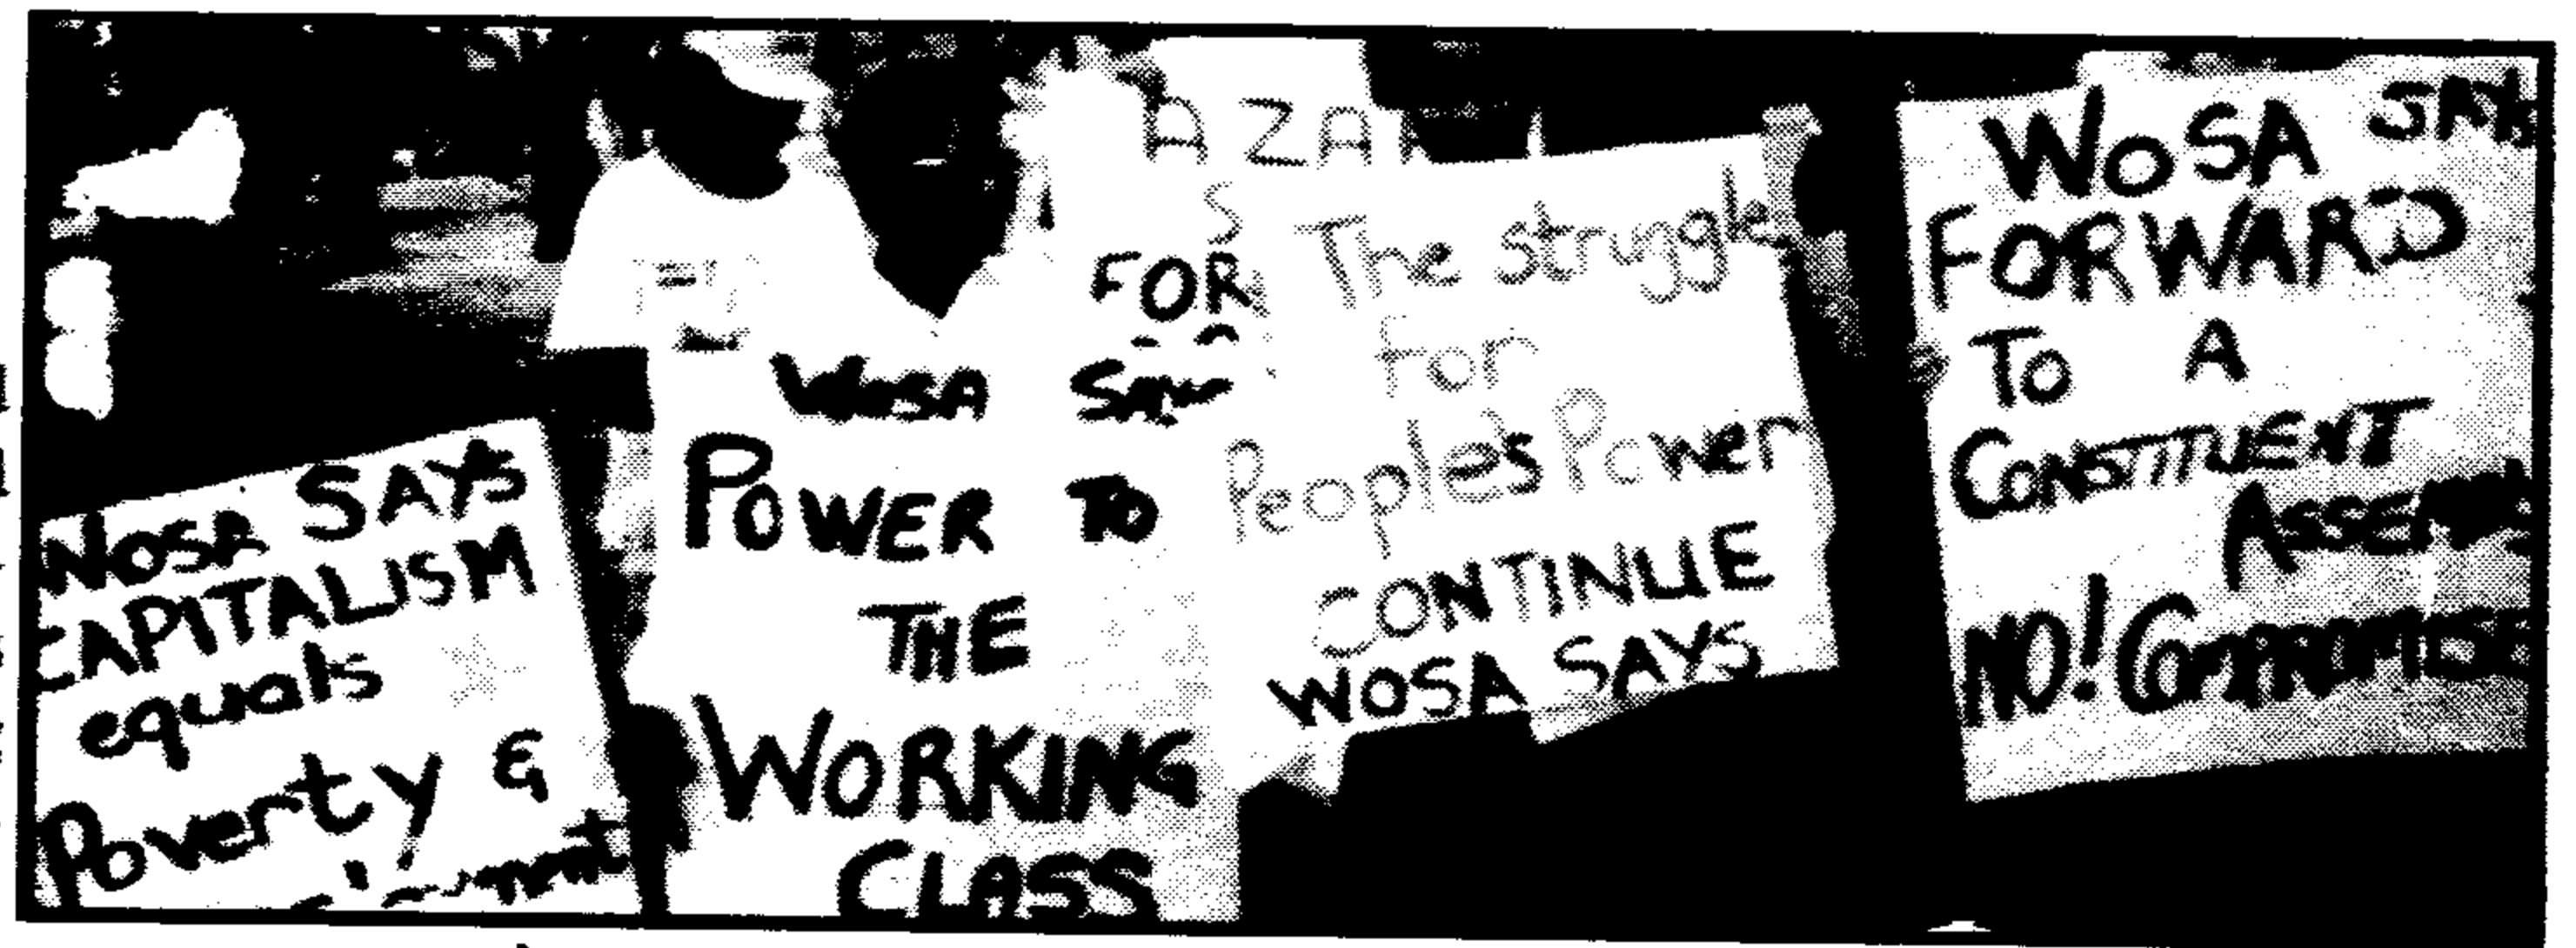 WOSA SAYS
CAPITALISM
equals
Poverty &
WOSA
POWER TO
THE
WORKING
CLASS
FOR
The struggle
for
People's Power
CONTINUE
WOSA SAYS
WOSA SAYS
FORWARD
TO A
CONSTITUENT
ASSEMBLY
NO! COMPROMISE